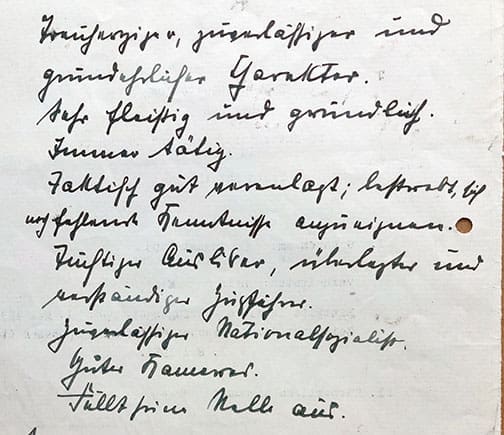 Treuherziger, zuverlässiger und
grundehrlicher Charakter.
Sehr fleißig und gründlich.
Immer tätig.
Taktisch gut veranlagt; bestrebt, sich
noch fehlende Kenntnisse anzueignen.
Tüchtiger Ausbilder, überlegter und
verständiger Zugführer.
Zuverlässiger Nationalsozialist.
Guter Kamerad.
Füllt seine Stelle aus.